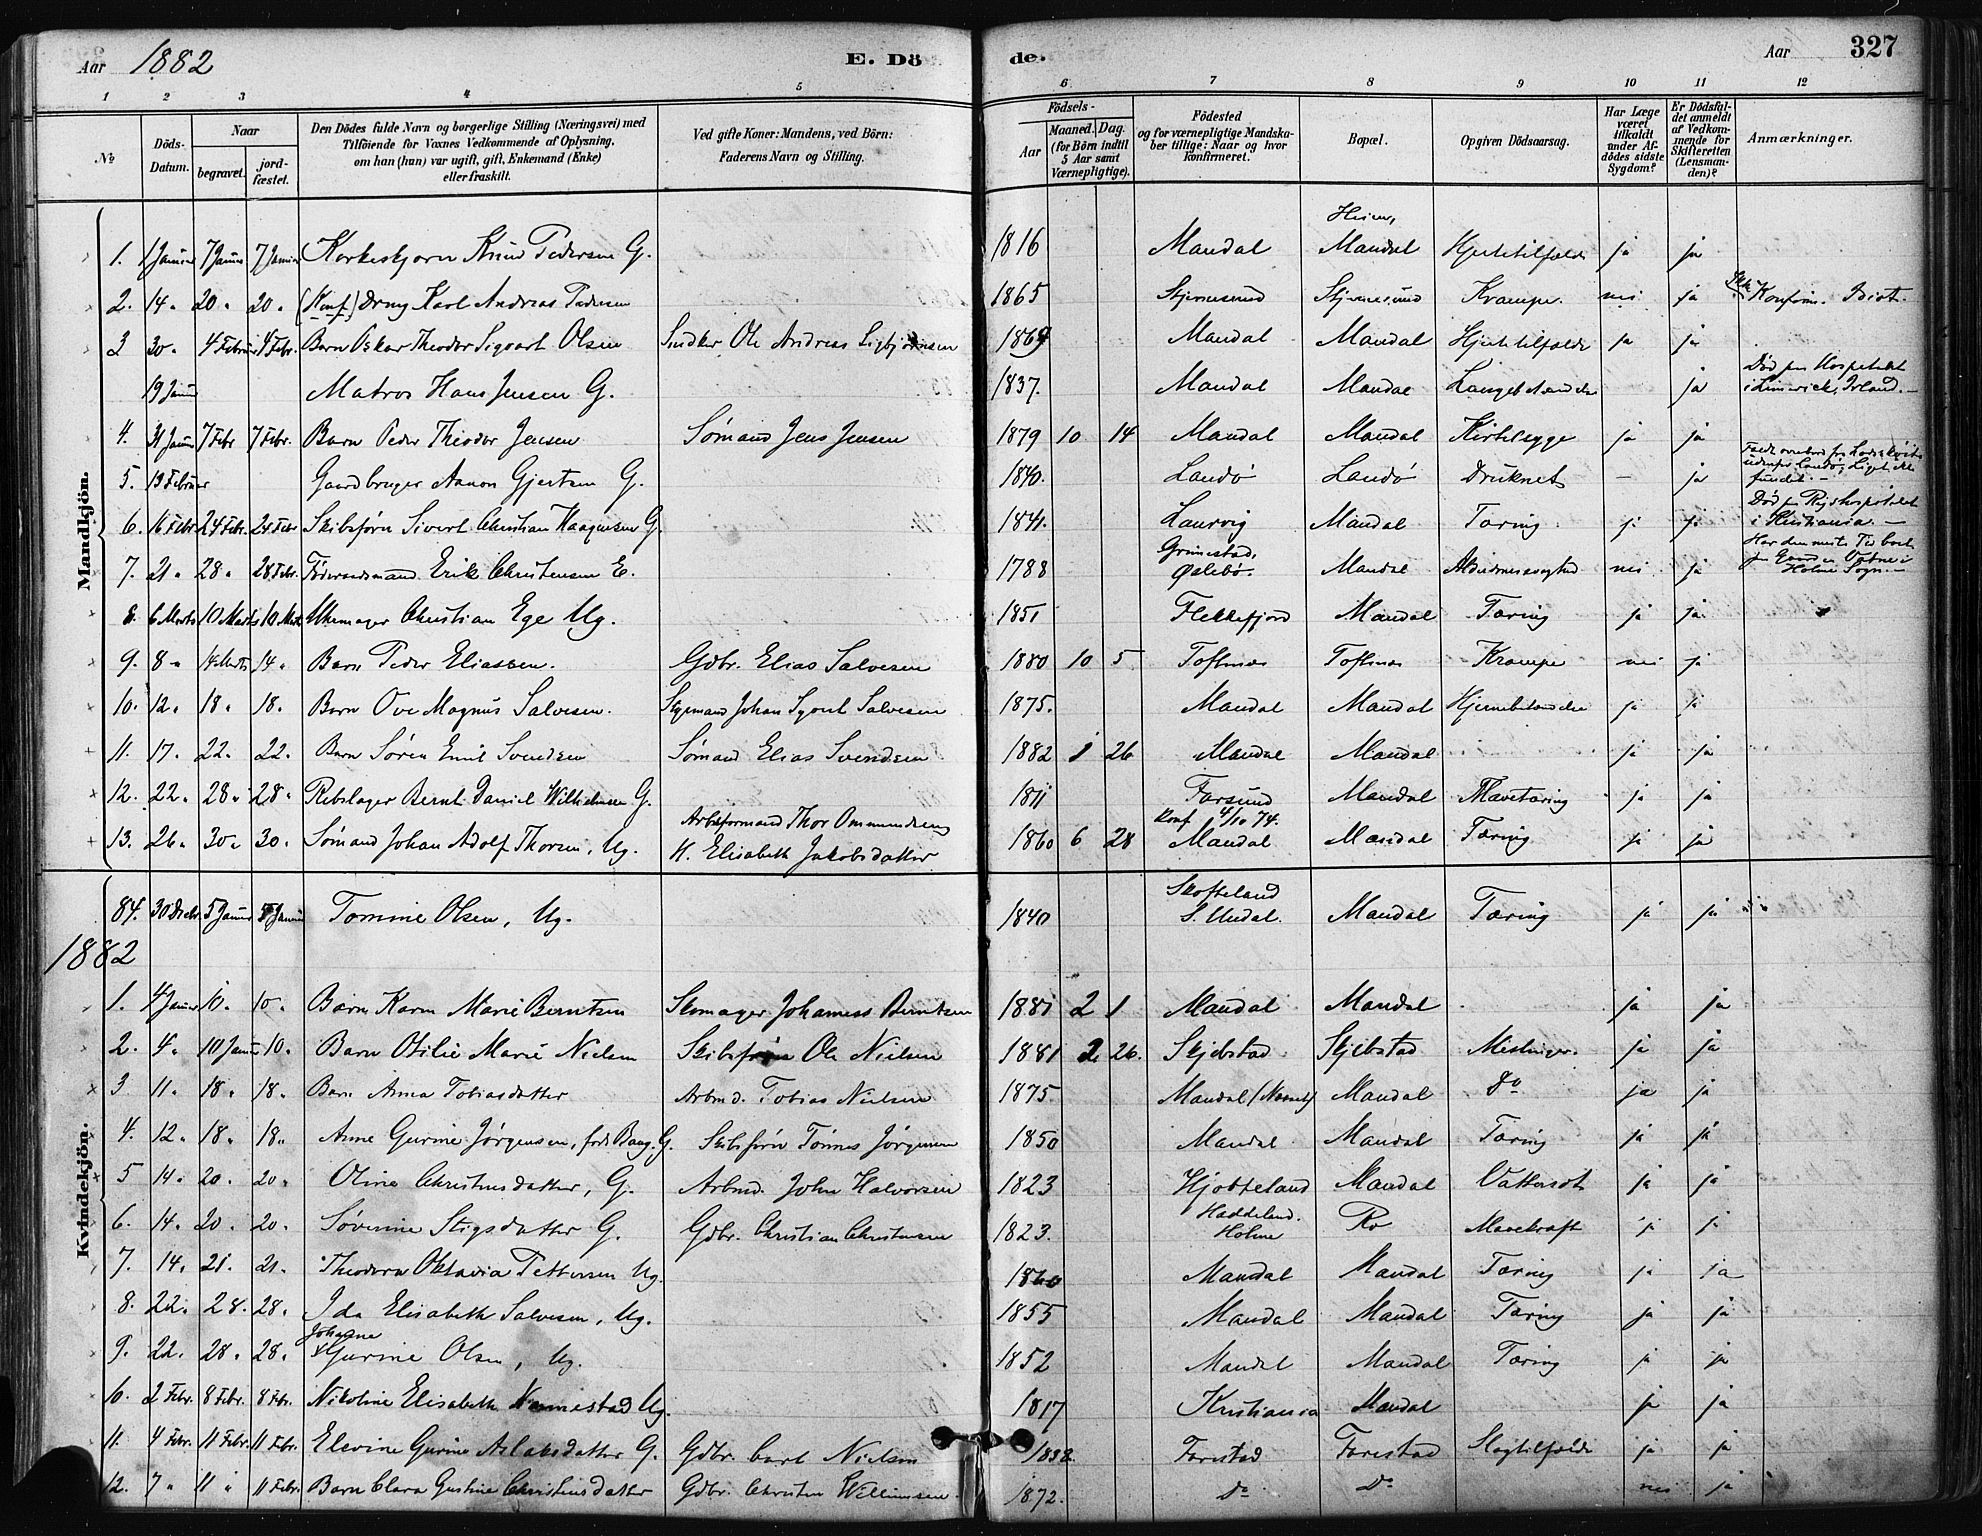 Aar 1882 E. Döde. Aar 327
1 2 3 4 5 6 7 8 9 10 11 12
No Döds-Datum. Naar begravet. jordfæstet. Den Dödes fulde Navn og borgerlige Stilling (Næringsvei) med Tilföiende for Voxnes Vedkommende af Oplysning, om han (hun) var ugift, gift, Enkemand (Enke) eller fraskilt. Ved gifte Koner: Mandens, ved Börn: Faderens Navn og Stilling. Födsels- Aar Maaned. Dag. (for Börn indtil 5 Aar samt Værnepligtige). Födested og for værnepligtige Mandskaber tillige: Naar og hvor konfirmeret. Bopæl. Opgiven Dödsaarsag. Har Læge været tilkaldt under Afdödes sidste Sygdom? Er Dödsfaldet anmeldt af Vedkommende for Skifteretten (Lensmanden)? Anmærkninger.
Mandkjön.
1. 1 Januar 7 Januar 7 Januar Knud Pedersen G. 1816 Mandal Mandal Hjertetilfælde ja ja
2. 14 " 20 " 20 " (Konf.) Dreng Karl Andreas Pedersen 1865 Skjernesund Skjernesund Krampe nei ja Konfirm. Bist.
3 30 " 4 Februar 4 Febr. Barn Oskar Theodor Sigvart Olsen Snedker Ole Andreas Sigbjørnsen 1869 Mandal Mandal Hjertetilfælde ja ja
19 Januar Matros Hans Jensen G. 1837. Mandal Mandal Lungebetændelse ja Død paa Hospitalet i Limerick, Irland. —
4. 31 Januar 7 Febr 7 Febr. Barn Peder Theodor Jensen Sømand Jens Jensen 1879 10 14 Mandal Mandal Kirtelsyge ja ja
5. 13 Februar Gaardbruger Aanon Gjertsen G. 1840. Landö Landö Druknet — ja Liget ikke fundet. —
6. 16 Febr 24 Febr. 24 Febr Skibsfører Sivert Christian G. Laurvig Mandal Tæring ja ja Død paa Rigshospitalet i Kristiania. —
7. 21 " 28 " 28 Febr. Föderaadsmand Erik Christensen E. 1788 Grimestad, Øslebø. Mandal Alderdomssvaghed nei ja Har den meste Tid boet paa Gaarden Vatne i Holme Sogn. —
8. 6 Marts 10 Marts 10 Marts Uhrmager Christian Ege Ug. 1851 Flekkefjord Mandal Tæring ja ja
9. 8 " 14 Marts 14 " Barn Peder Eliassen. Gdbr. Elias Salvesen 1880 10 5 Toftenæs Toftenæs Krampe nei ja
10. 12 " 18 " 18. Barn Ove Magnus Salvesen. Styrmand Johan Salvesen 1875. Mandal Mandal Hjernebetændelse ja ja
11. 17. 22 " 22. Barn Søren Emil Svendsen Sømand Elias Svendsen 1882 1 26 Mandal Mandal ja ja
12. 22 " 28 " 28 " Rebslager Bernt Daniel Wilhelmsen G. 1811 Farsund Mandal Mavetæring ja ja
13. 26 " 30 " 30. Sømand Johan Adolf Thorsen, Ug. Arbeidsformand Thor Ommundsen H. Elisabeth Jakobsdatter 1860 6 28 Konf 4/10 74. Mandal Mandal Tæring ja ja
84. 30 Decbr. 5 Januar 5 Januar Tomine Olsen, Ug. 1840 Skofteland S. Undal. Mandal Tæring ja ja
1882
Kvindekjön.
1. 4 Januar 10. 10 " Barn Karen Marie Berntsen Skomager Johannes Berntsen 1881 2 1 Mandal Mandal ja ja
2. 4 " 10 Januar 10. Barn Otilie Marie Nielsen Skibsfører Ole Nielsen 1881 2 26. Skjebstad Skjebstad Meslinger. ja ja
3 11 " 18 " 18. Barn Anna Tobiasdatter Arbmd. Tobias Nielsen 1875 Mandal Mandal Do ja ja
4. 12 " 18 " 18 " Anne Gurine Jørgensen, født Baug. G. Skibsfører Tönnes Jørgensen 1850 Mandal Mandal Tæring ja ja
5 14 " 20. 20 " Oline Christensdatter, G. Arbmd. John Halvorsen 1823 Hjorteland Mandal Vattersot ja ja
6. 14 " 20. 20. Søverine Stigsdatter G. Gdbr. Christian Christensen 1823. Haddeland. Holme Ro Mavekræft ja ja
7. 14 " 21. 21. Theodora Oktavia Pettersen Ug. 1860 Mandal Mandal Tæring ja ja
8. 22 " 28. 28 " Ida Elisabeth Salvesen, Ug. 1855 Mandal Mandal Tæring ja ja
9. 22. 28 " 28. Johanne Gurine Olsen, Ug. 1852 Mandal Mandal Tæring ja ja
10. 2 Febr. 8 Febr. 8 Febr. Nikoline Elisabeth Ug. 1817 Kristiania Mandal ja ja
11. 4 Febr. 11 Febr. 11 Febr. Elevine Gurine Aslaksdatter G. Gdbr. Carl Nielsen 1832 Farestad Farestad Slagtilfælde ja ja
12. 7 " 11 " 11 Febr. Barn Clara Gustine Christensdatter Gdbr. Christen Willumsen. 1872. Do Do nei ja